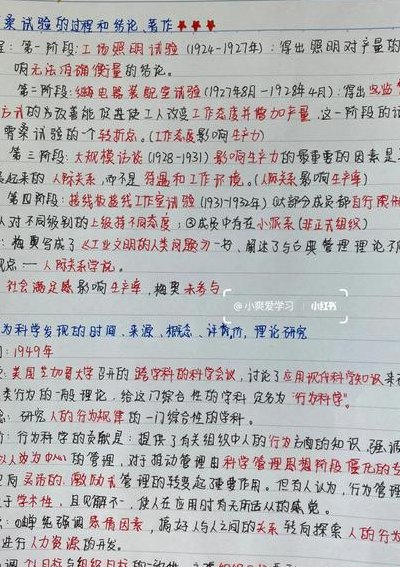 桑试验的过程和结论、著作★★★
：第一阶段：工场照明试验（1924-1927年）：得出照明对产量的
响无法准确衡量的结论。
第二阶段：继电器装配室试验（1927年8月-1928年4月）：得出
方式的为改善能促进使工人改变工作态度并增加产量，这一阶段的
霍桑试验的一个转折点。（工作态度影响生产力）
第三阶段：大规模访谈（1928-1931）影响生产力的最重要的因素是
起来的人际关系，而不是待遇和工作环境。（人际关系影响生产率）
第四阶段：接线板接线工作室试验（1931-1932年）①大部分成员都自行限
人对不同级别的上级持不同态度；③成员中存在小派系（非正式组织）
：梅奥写成了《工业文明的人类问题》一书，阐述了与古典管理理论不
观点——人际关系学说。
社会满足感影响生产率，梅奥未参与
@小爽爱学习 小红书
为科学发现的时间、来源、概念、评价，理论研究
：1949年
：美国芝加哥大学召开的跨学科的科学会议，讨论了应用现代科学知识来
类行为的一般理论，给这门综合性的学科定名为“行为科学”。
：研究人的行为规律的一门综合性的学科。
：行为科学的贡献是：提供了有关组织中人的行为方面的知识，强调
以人为中心的管理，对于推动管理由科学管理思想阶段
向灵活的、激励式管理的转变起了重要作用。但有人认为，行为管理
于学术性，且见解不一，使人在应用时有无所适从的感觉。
：①唯先强调感情因素，搞好人与人之间的关系转向探索人的行为
进行人力资源的开发。
调个人目标与组织目标的